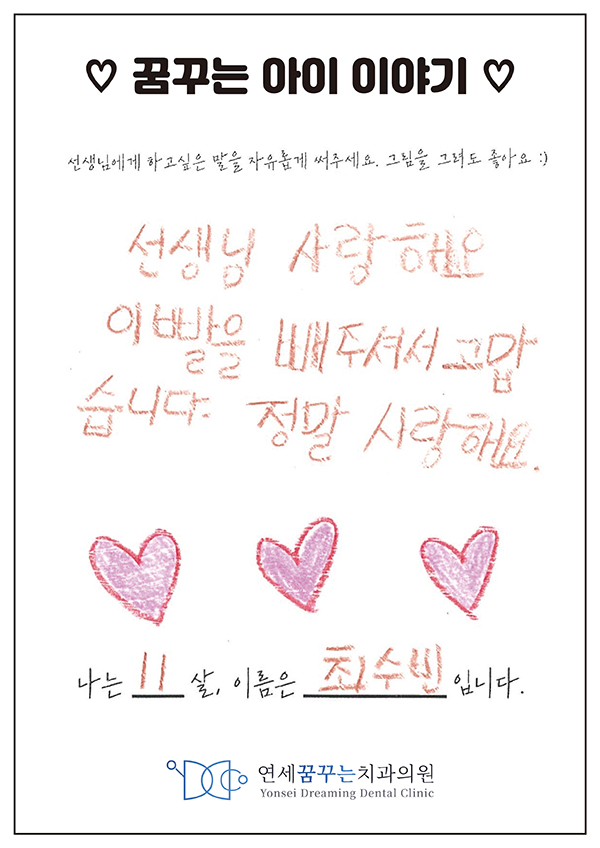 ♡ 꿈꾸는 아이 이야기 ♡
선생님에게 하고싶은 말을 자유롭게 써주세요. 그림을 그려도 좋아요 :)
선생님 사랑해요
이빨을 빼주셔서 고맙
습니다. 정말 사랑해요.
나는 11 살, 이름은 최수빈 입니다.
연세꿈꾸는치과의원
Yonsei Dreaming Dental Clinic